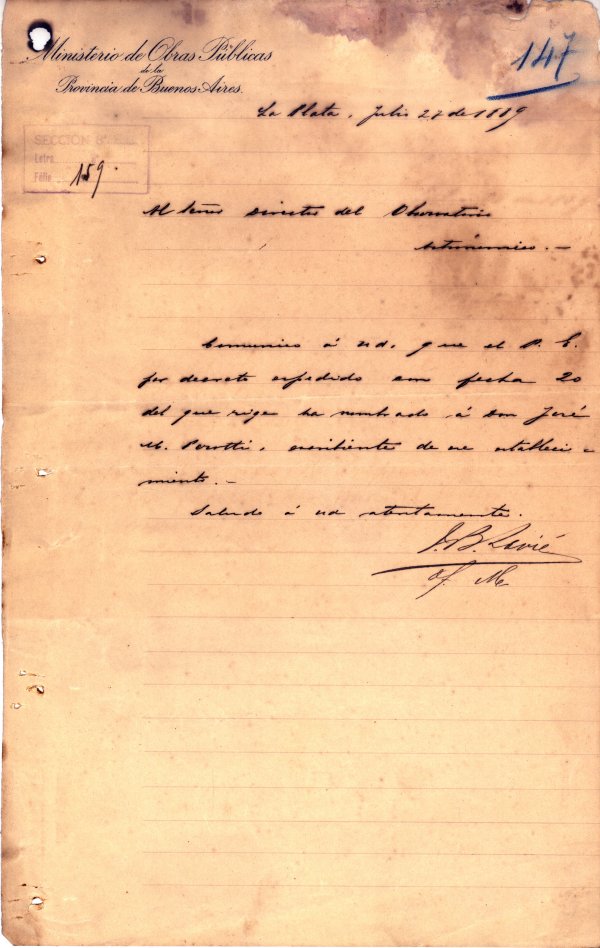 Ministerio de Obras Públicas
de la
Provincia de Buenos Aires.
147
La Plata, Julio 27 de 1889
SECCION
Letra
Folio 159.
Al Señor Director del Observatorio
Astronómico. —
Comunico á Ud. que el P. E.
por decreto expedido con fecha 20
del que rige ha nombrado á Don José
M. Perotti, escribiente de ese estableci-
miento. —
Saludo á Ud atentamente.
J. B. Lavié
Of. M